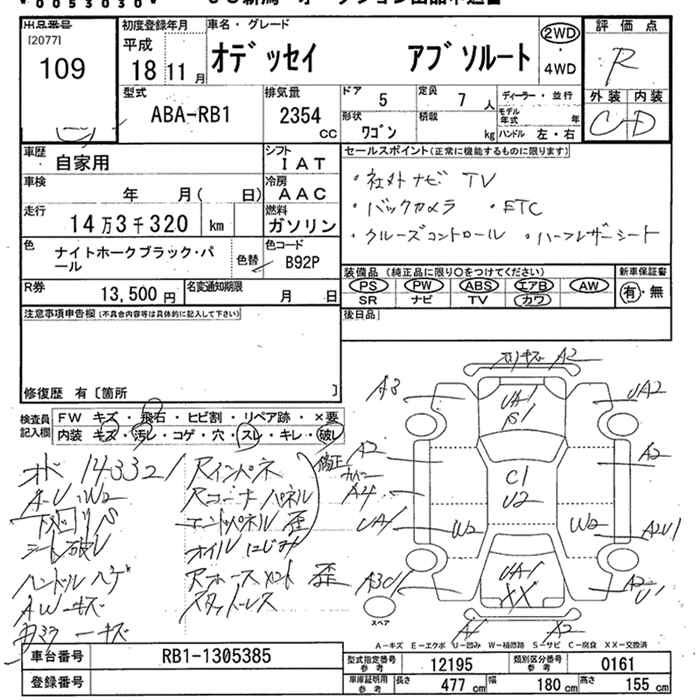 0053030
出品番号
[2077]
109
初度登録年月
平成 18 11 月
車名・グレード
オデッセイ アブソルート
2WD
4WD
評価点
R
外装 内装
C D
型式
ABA-RB1
排気量
2354 cc
ドア 5
定員 7 人
形状 ワゴン
積載 kg
ディーラー・並行
モデル年式 年
ハンドル 左・右
車歴
自家用
シフト
IAT
車検
年 月( 日)
冷房
AAC
走行
14万3千320 km
燃料
ガソリン
色
ナイトホークブラック・パール
色替
色コード
B92P
R券
13,500円
名変通知期限
月 日
セールスポイント(正常に機能するものに限ります)
・社外ナビ TV
・バックカメラ ・ETC
・クルーズコントロール ・ハーフレザーシート
装備品(純正品に限り○をつけてください)
PS PW ABS エアB AW
SR ナビ TV カワ
新車保証書
有・無
後日品
注意事項申告欄(不具合内容等は具体的に記入して下さい)
修復歴 有〔箇所 〕
検査員記入欄
FW キズ・飛石・ヒビ割・リペア跡・×要
内装 キズ・汚レ・コゲ・穴・スレ・キレ・破レ
オド 143321
A-U、W2
下回りS
シート破レ
ハンドルハゲ
AWキズ
Rインパネ
Rコーナーパネル
エンドパネル歪
オイルにじみ
Rホースメント歪
スタッドレス
修正
A2
A3
UA1
S1
UA2
A2
A4
UA1
W2
C1
U2
A2
W2
A2U1
A3U1
UA1
XX
A2
U1
A1
X2
スペア
A-キズ E-エクボ U-凹み W-補修跡 S-サビ C-腐食 XX-交換済
車台番号
RB1-1305385
登録番号
型式指定番号 参考
12195
類別区分番号 参考
0161
車庫証明用 参考
長さ 477 cm
幅 180 cm
高さ 155 cm